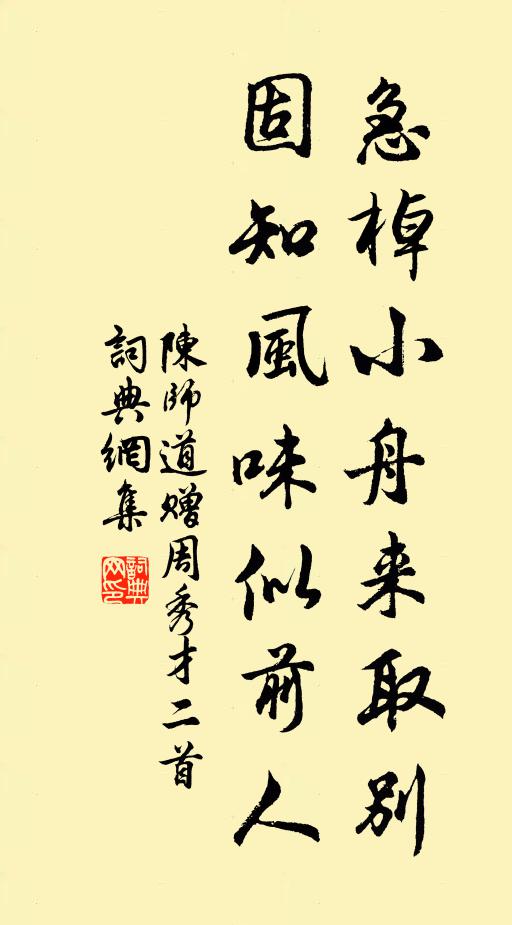 急棹小舟来取别
固知風味似前人
陳師道赠周秀才二首
詞典網集
詞典网印